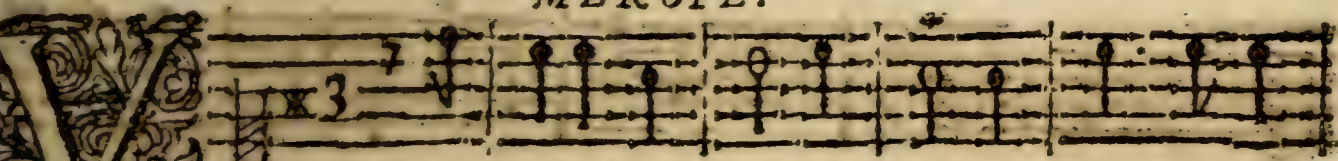 MEROPE.
V
3